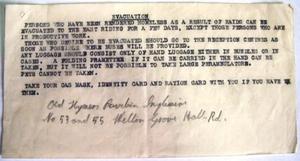 EVACUATION
PERSONS WHO HAVE BEEN RENDERED HOMELESS AS A RESULT OF RAIDS CAN BE
EVACUATED TO THE EAST RIDING FOR A FEW DAYS, EXCEPT THOSE PERSONS WHO ARE
IN PRODUCTIVE WORK.
THOSE WHO WISH TO BE EVACUATED SHOULD GO TO THE RECEPTION CENTRES AS
SOON AS POSSIBLE WHERE BUSES WILL BE PROVIDED.
ANY LUGGAGE SHOULD CONSIST ONLY OF HAND LUGGAGE EITHER IN BUNDLES OR IN
CASES. A FOLDING PRAMETTE IF IT CAN BE CARRIED IN THE HAND CAN BE
TAKEN, BUT IT WILL NOT BE POSSIBLE TO TAKE LARGE PERAMBULATORS.
PETS CANNOT BE TAKEN.
TAKE YOUR GAS MASK, IDENTITY CARD AND RATION CARD WITH YOU IF YOU HAVE
THEM.
Old
No 53 and 55 Grove Hall Rd.